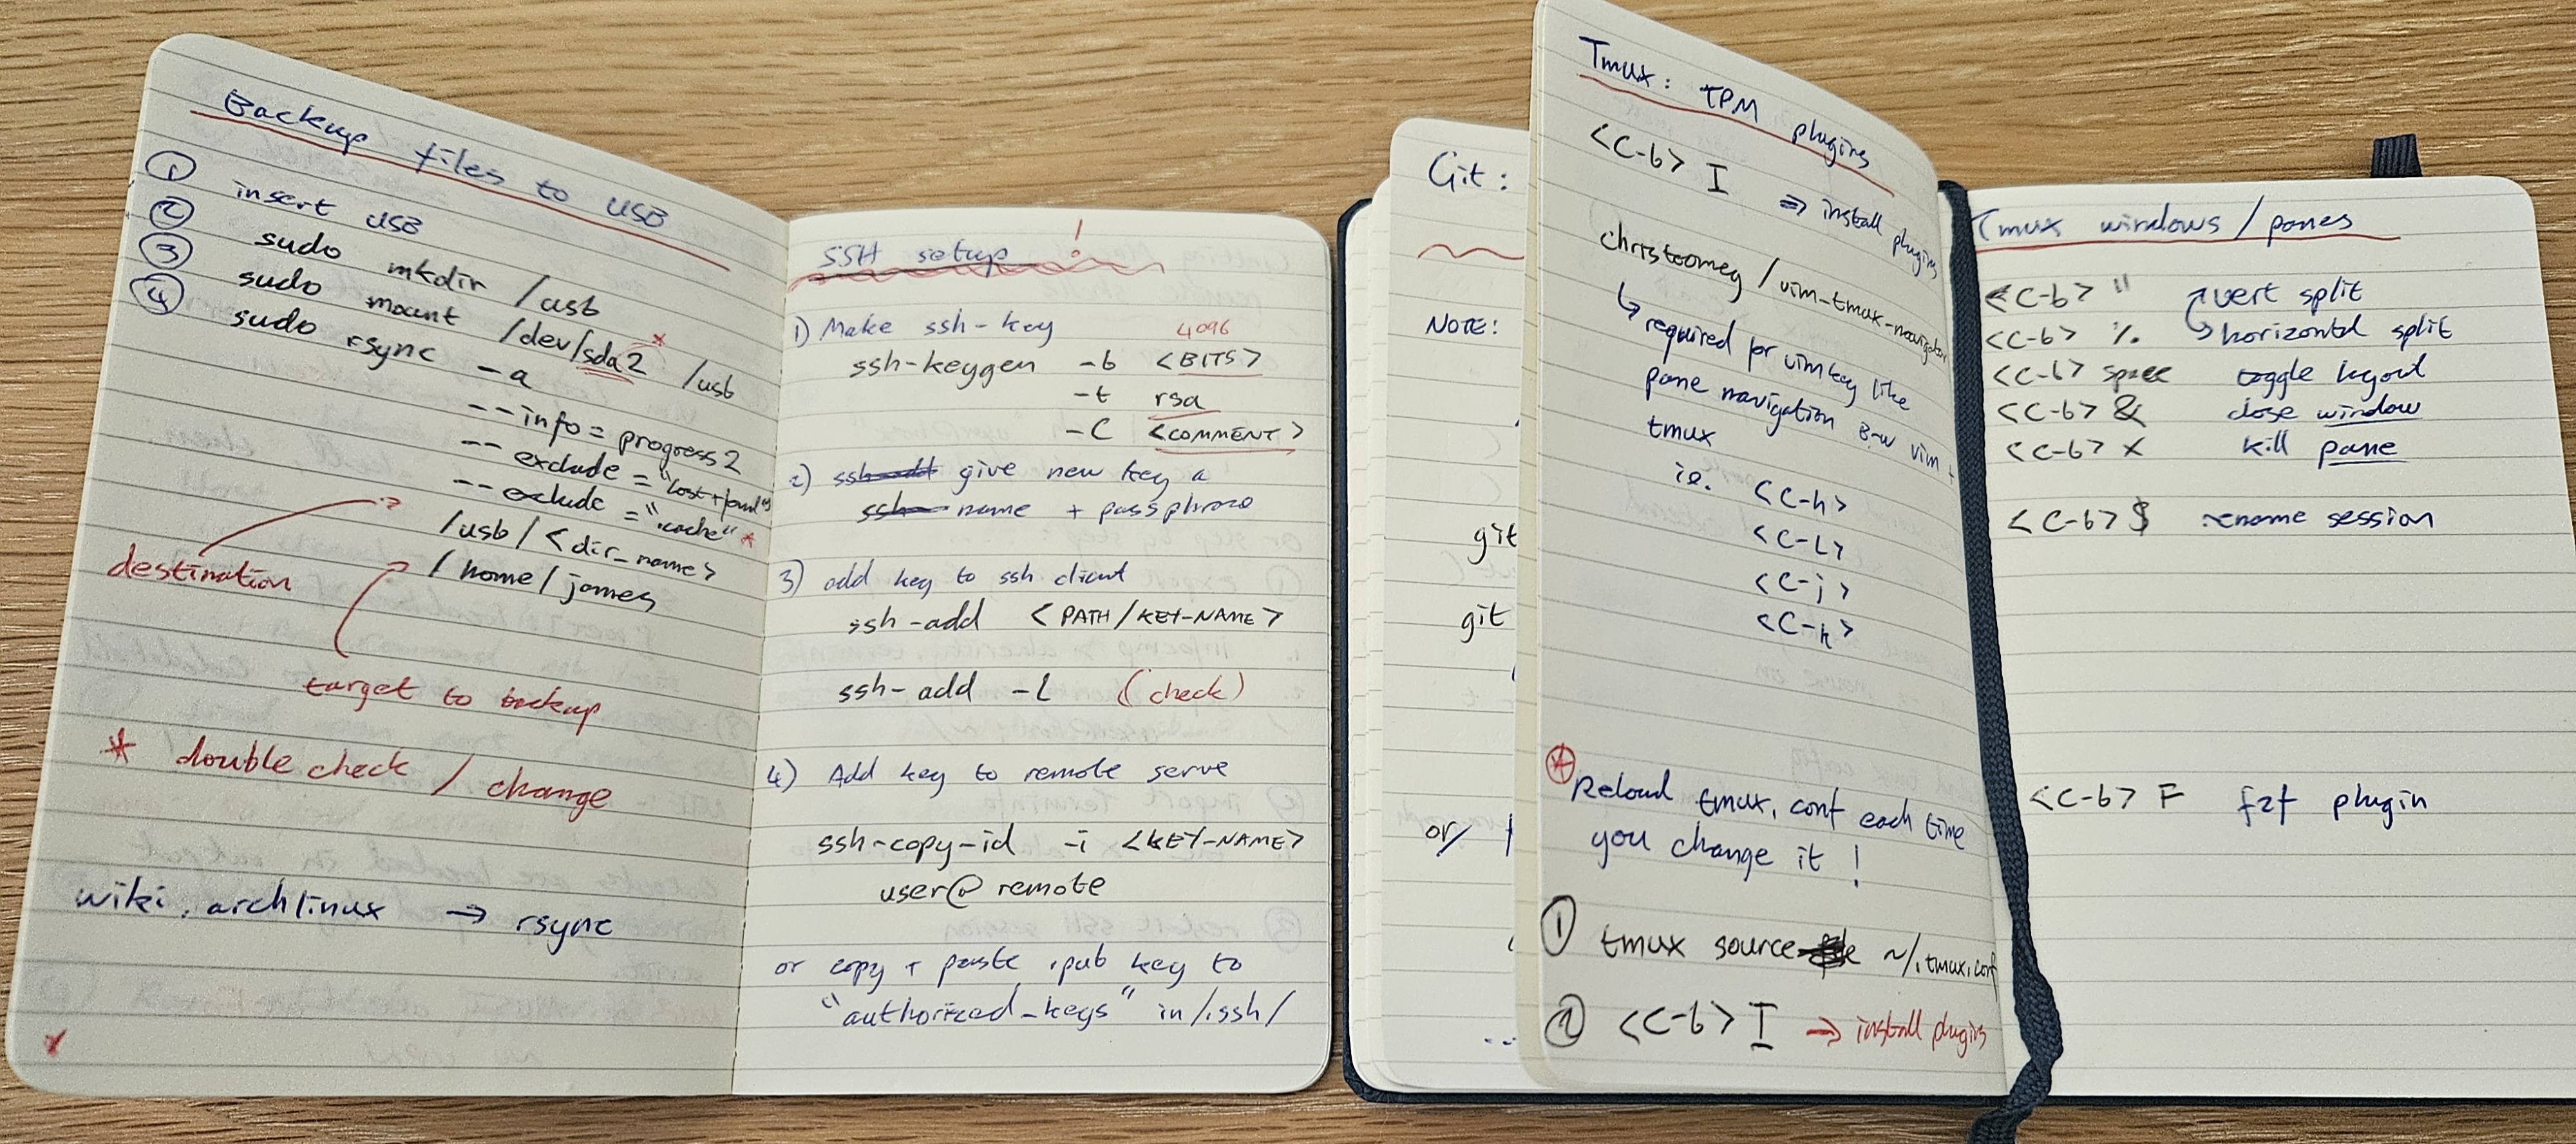 Backup files to USB
① insert USB
② sudo mkdir /usb
③ sudo mount /dev/sda2 * /usb
④ sudo rsync -a
--info=progress2
--exclude="lost+found"
--exclude=".cache" *
/usb/<dir_name>
/home/james
destination
target to backup
* double check / change
wiki.archlinux → rsync
SSH setup !
1) Make ssh-key
4096
ssh-keygen -b <BITS>
-t rsa
-C <COMMENT>
2) ssh-add give new key a
ssh- name + passphrase
3) add key to ssh client
ssh-add <PATH/KEY-NAME>
ssh-add -L (check)
4) Add key to remote serve
ssh-copy-id -i <KEY-NAME>
user@remote
or copy + paste .pub key to
"authorized_keys" in /.ssh/
Git:
NOTE:
git
git
or/
Tmux: TPM plugins
<C-b> I ⇒ install plugins
christoomey/vim-tmux-navigator
↳ required for vimkey like
pane navigation B-w vim +
tmux
ie. <C-h>
<C-L>
<C-j>
<C-k>
* Reload tmux.conf each time
you change it!
① tmux source ~/.tmux.conf
② <C-b> I → install plugins
Tmux windows/panes
<C-b> " vert split
<C-b> % horizontal split
<C-b> space toggle layout
<C-b> & close window
<C-b> x kill pane
<C-b> $ rename session
<C-b> F fzf plugin